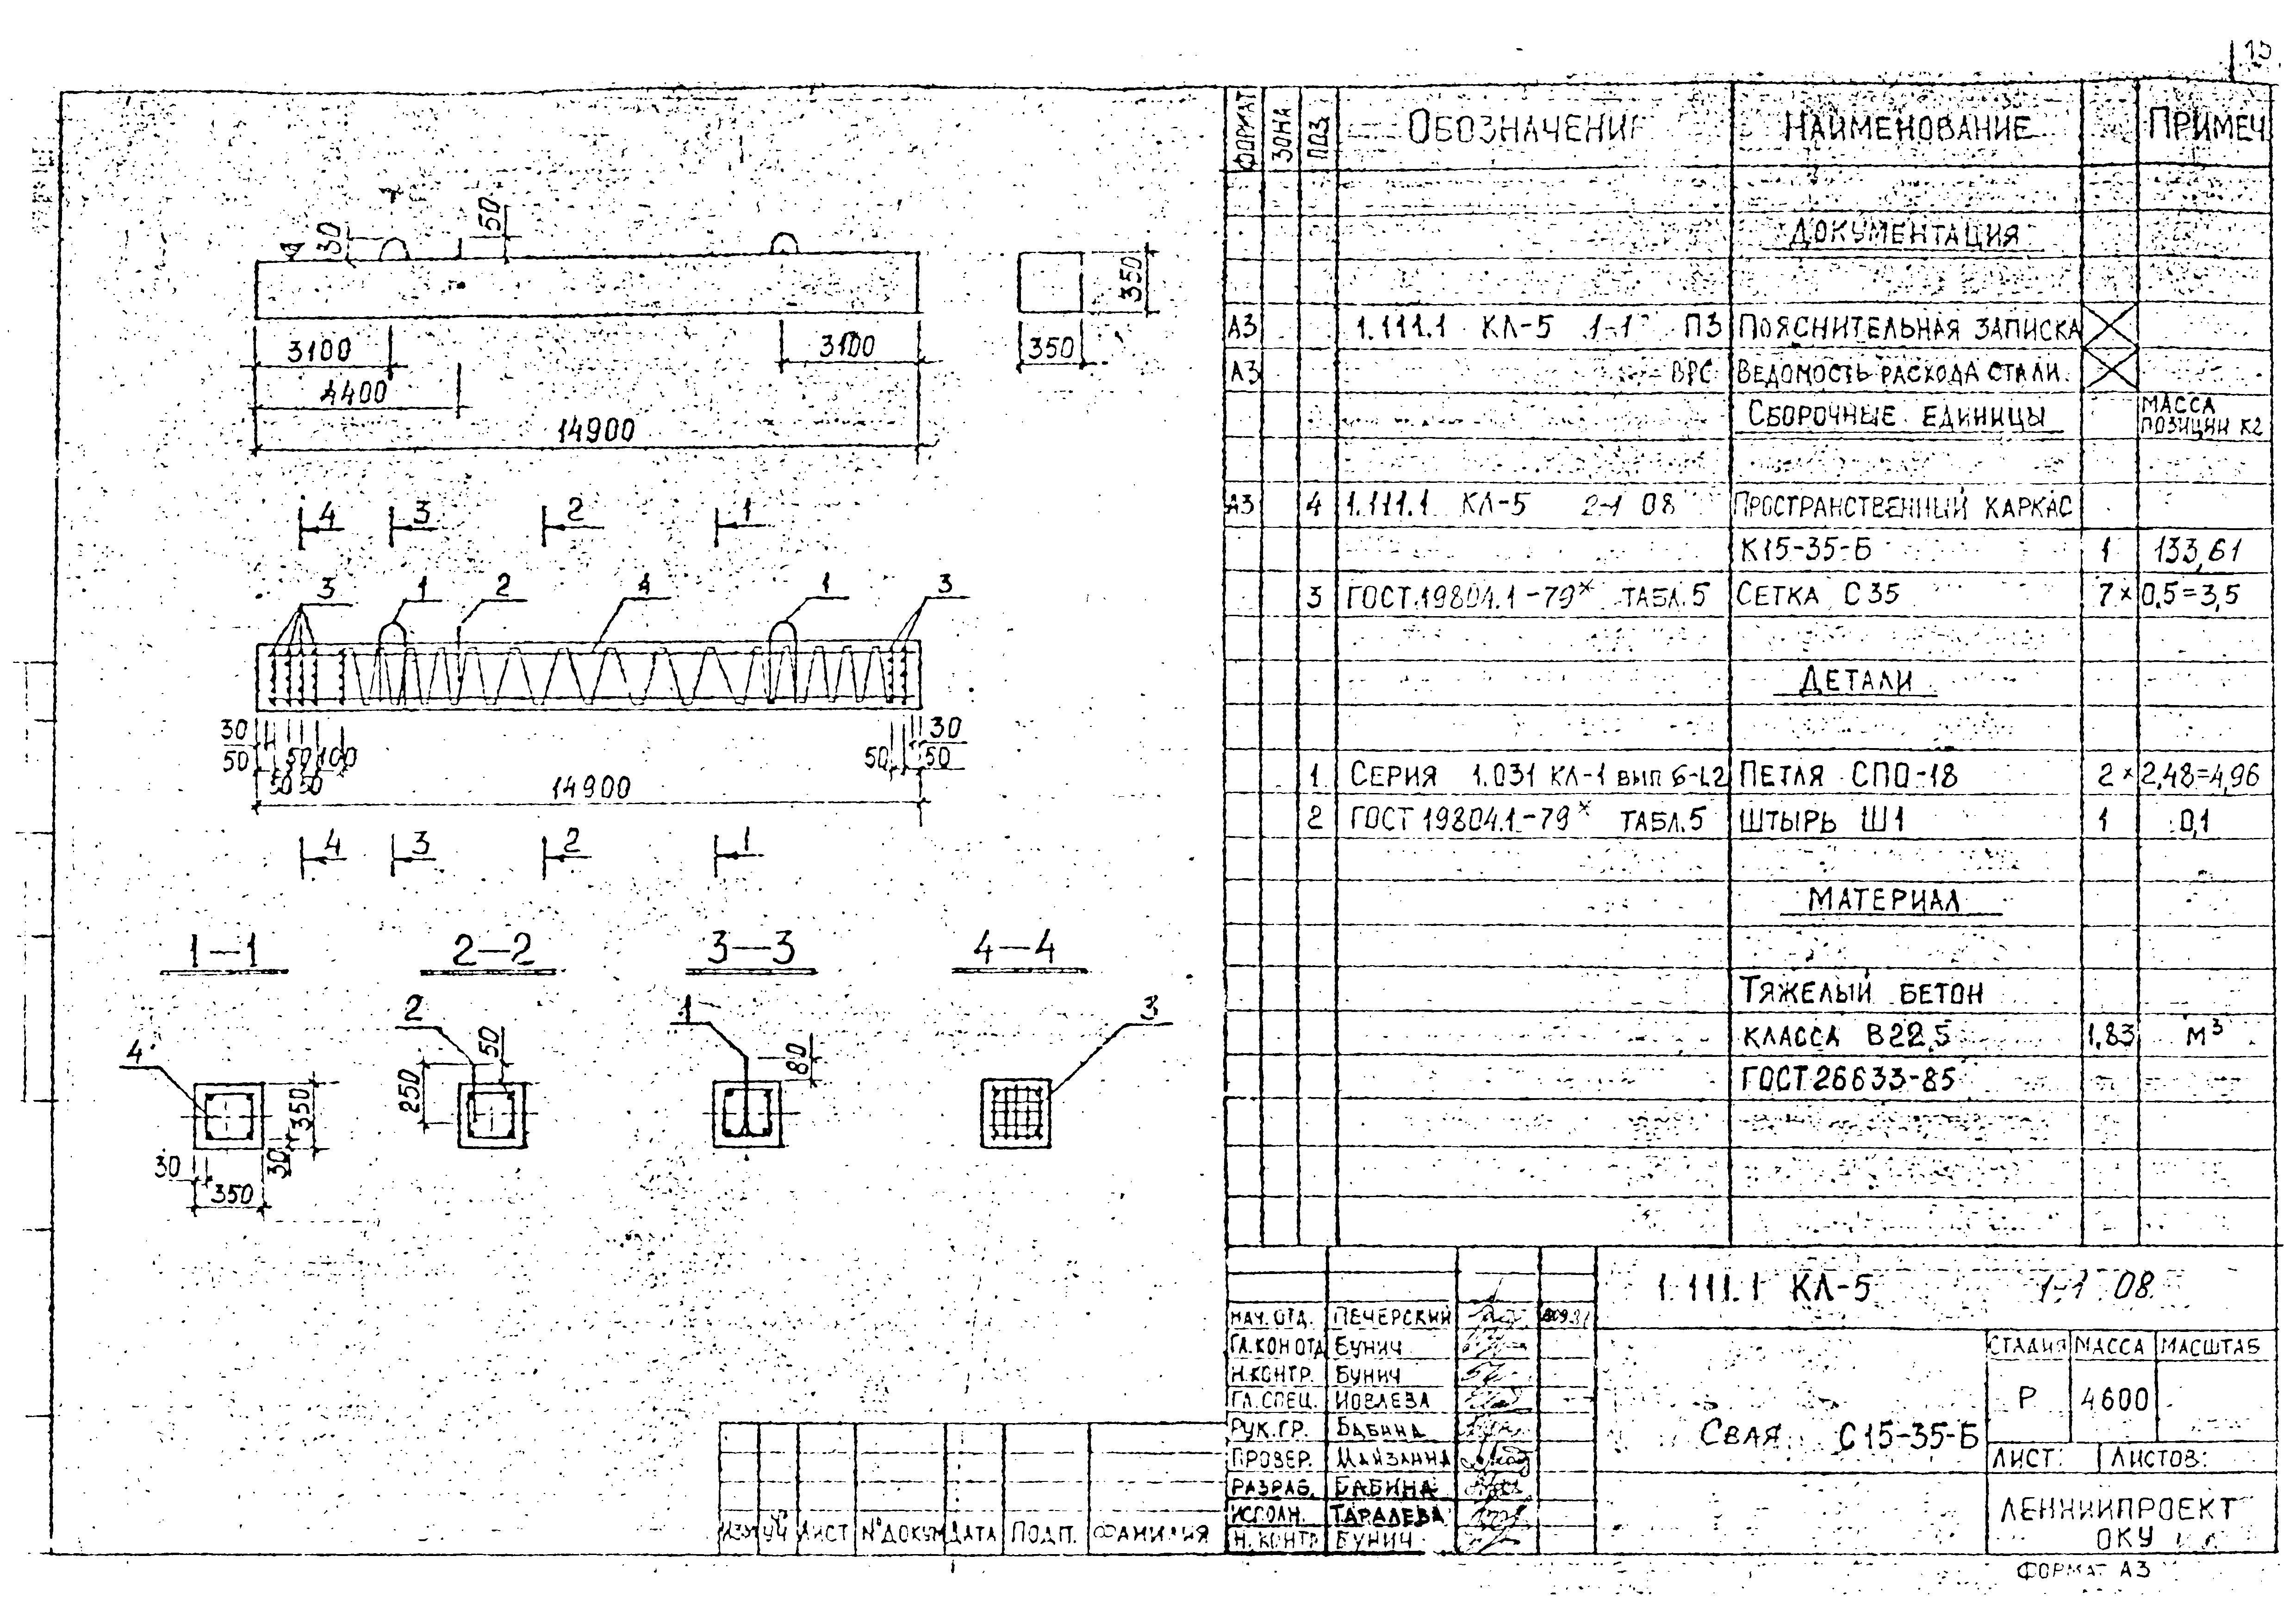 15
ФОРМАТ ЗОНА ПОЗ. ОБОЗНАЧЕНИЕ НАИМЕНОВАНИЕ ПРИМЕЧ
ДОКУМЕНТАЦИЯ
А3 1.111.1 КЛ-5 1-1 ПЗ ПОЯСНИТЕЛЬНАЯ ЗАПИСКА
А3 ВРС ВЕДОМОСТЬ РАСХОДА СТАЛИ.
СБОРОЧНЫЕ ЕДИНИЦЫ МАССА ПОЗИЦИИ КГ
А3 4 1.111.1 КЛ-5 2-1 08 ПРОСТРАНСТВЕННЫЙ КАРКАС
К15-35-Б 1 133,61
3 ГОСТ 19804.1-79* ТАБЛ.5 СЕТКА С35 7 × 0,5=3,5
ДЕТАЛИ
1 СЕРИЯ 1.031 КЛ-1 ВЫП 6-1.2 ПЕТЛЯ СПО-18 2 × 2,48=4,96
2 ГОСТ 19804.1-79* ТАБЛ.5 ШТЫРЬ Ш1 1 0,1
МАТЕРИАЛ
ТЯЖЕЛЫЙ БЕТОН
КЛАССА В22,5 1,83 М³
ГОСТ 26633-85
30 50
3100 3100 350 350
4400
14900
4 3 2 1
3 1 2 4 1 3
30 30
50 50 100 50 50
50 50
14900
4 3 2 1
1—1 2—2 3—3 4—4
4 2 1 3
50 80
250
350 30
30
350
1.111.1 КЛ-5 1-1 08
НАЧ. ОТД. ПЕЧЕРСКИЙ
ГЛ.КОН ОТД БУНИЧ
Н.КОНТР. БУНИЧ
ГЛ.СПЕЦ. ИОВЛЕВА
РУК.ГР. БАБИНА
ПРОВЕР. МАЙЗЛИНА
РАЗРАБ. БАБИНА
ИСПОЛН. ТАРАЛЕВА
Н. КОНТР БУНИЧ
СВАЯ С15-35-Б
СТАДИЯ МАССА МАСШТАБ
Р 4600
ЛИСТ: ЛИСТОВ:
ЛЕННИИПРОЕКТ
ОКУ
ИЗМ УЧ ЛИСТ №ДОКУМ ДАТА ПОДП. ФАМИЛИЯ
ФОРМАТ А3